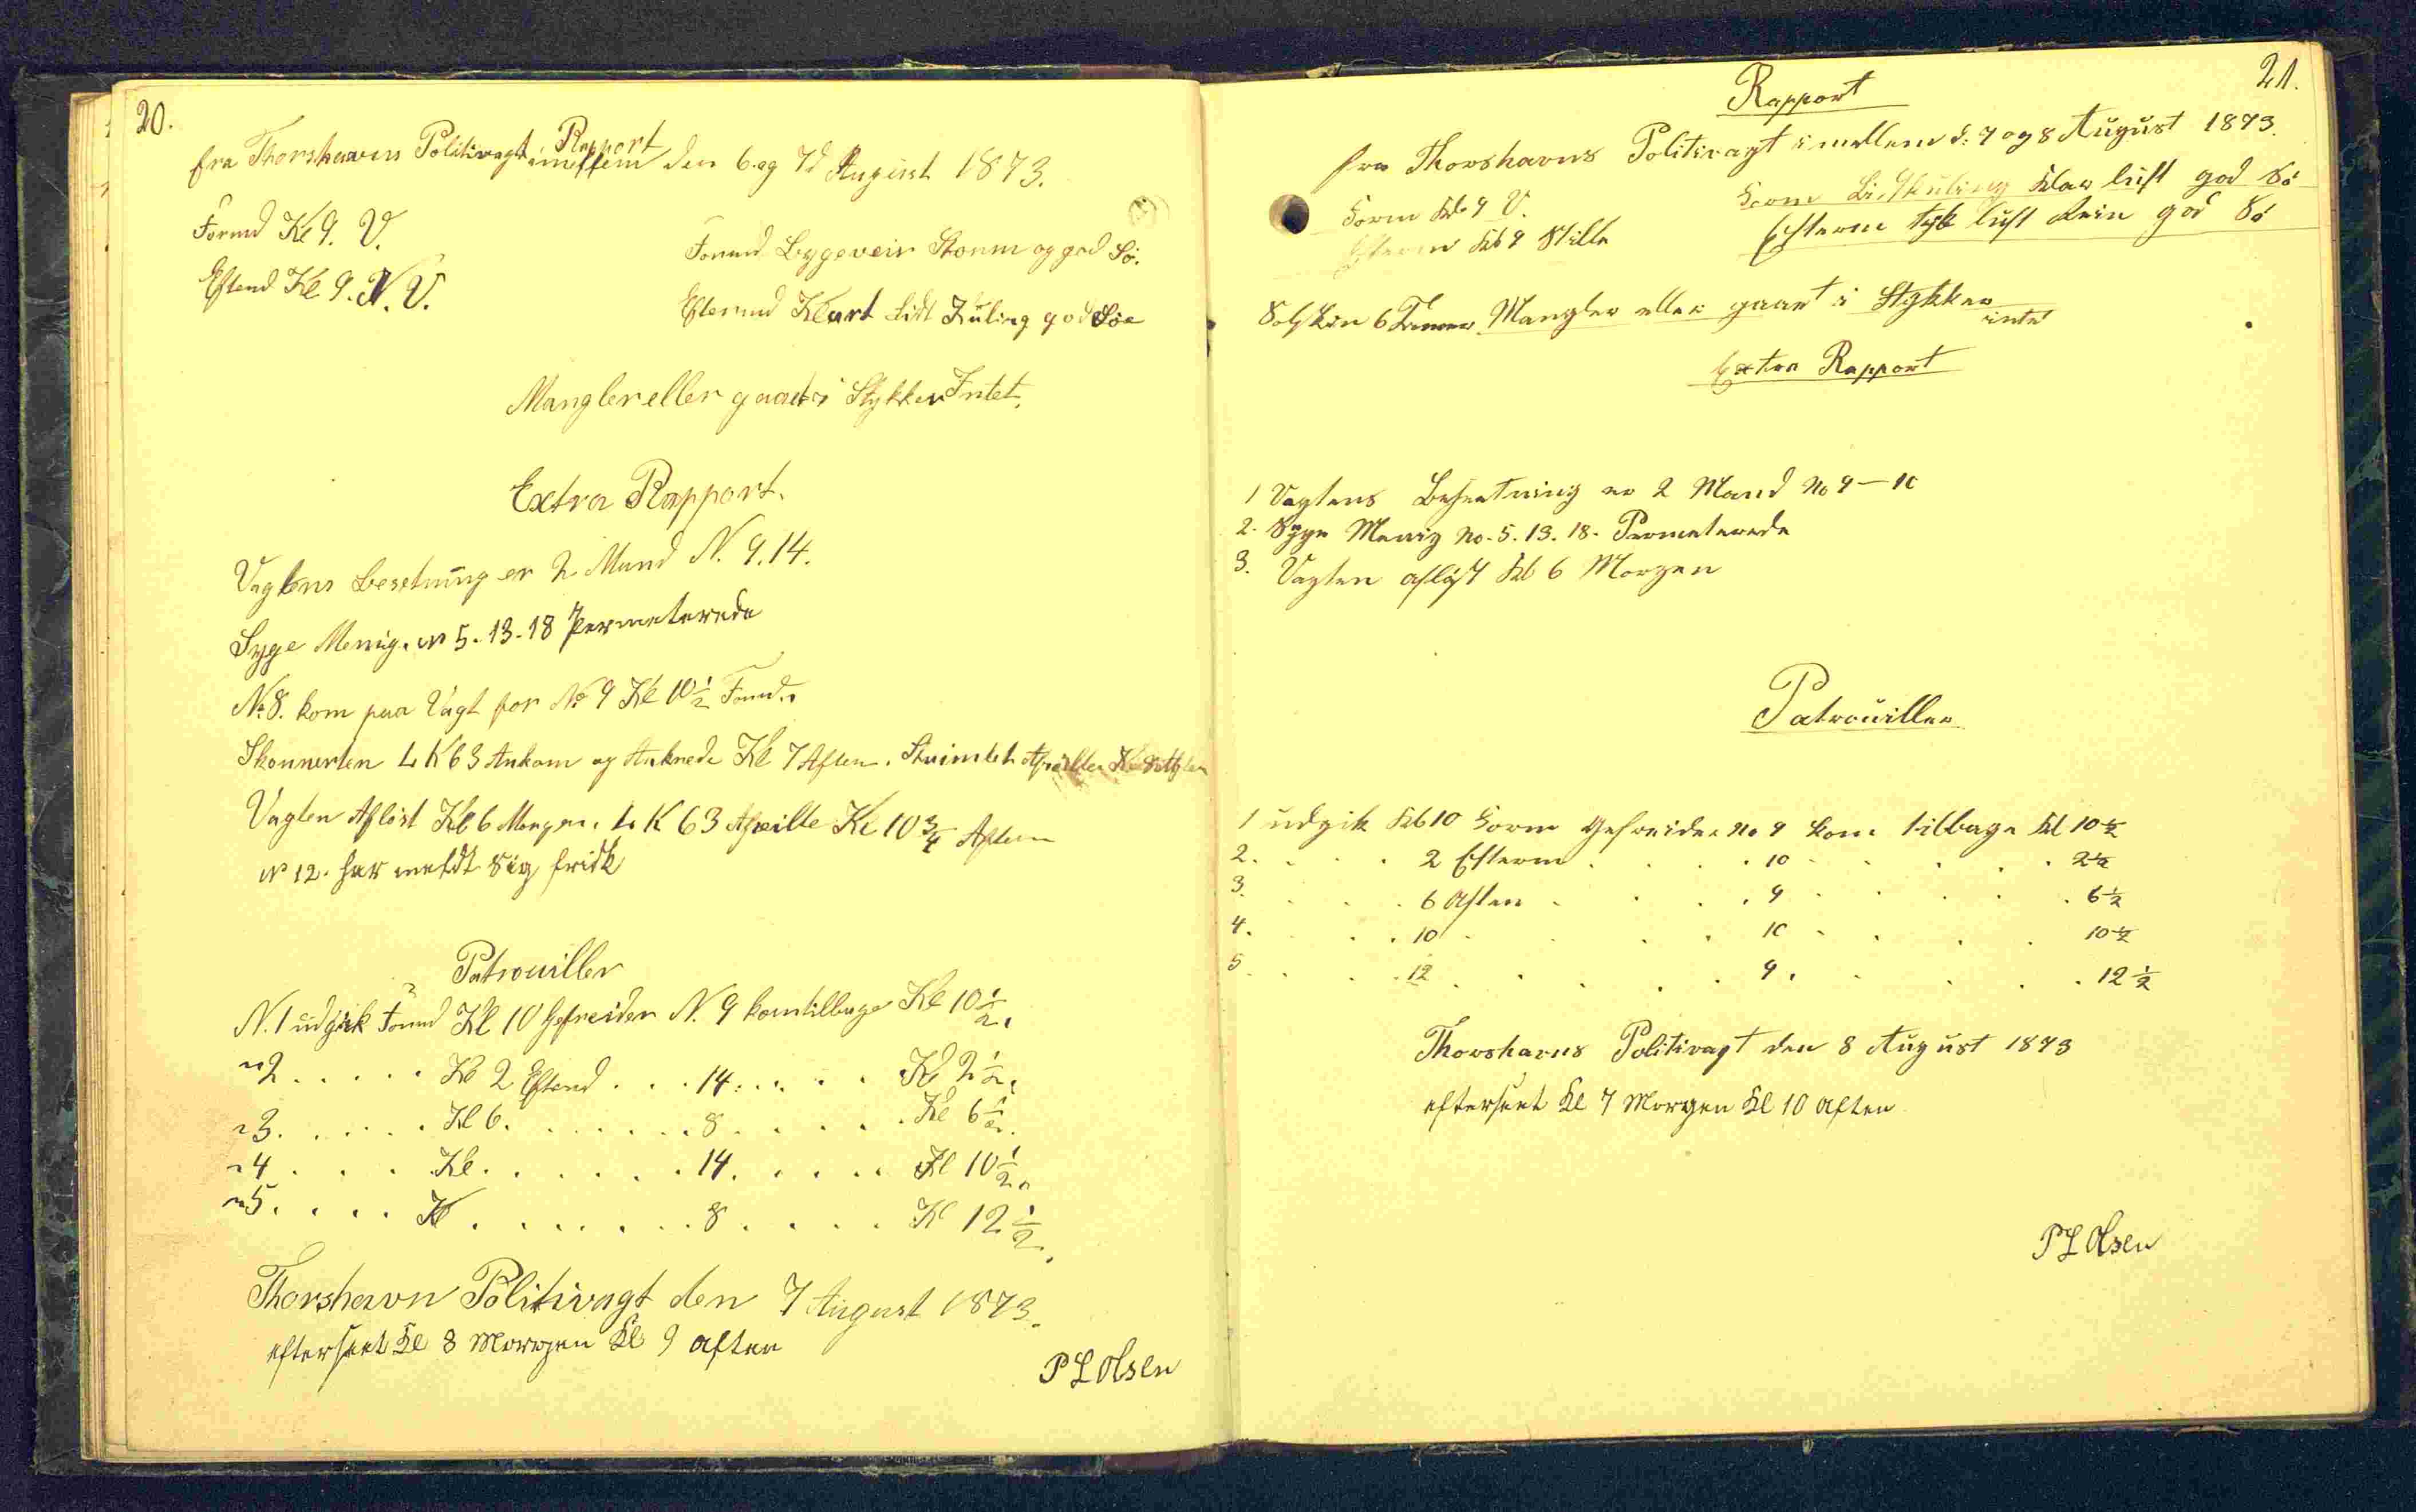 20.
Rapport
fra Thorshavns Politivagt imellem den 6. og 7d August 1873.
Formd Kl 9. V.
Eftend Kl 9. N. V.
Formd Bygeveir Storm og god Sö.
Eftermd Klart lidt Kuling god Söe
Mangler eller gaaet i Stykker Intet.
Extra Rapport.
Vagtens Besetning er 2 Mand N. 9. 14.
Syge Menig. No 5. 13. 18 Permeterede
No 8. kom paa Vagt for No 9 Kl 10 1/2 Formd.
Skonnerten L K 63 Ankom og Ankrede Kl 7 Aften.
Vagten Aflöst Kl 6 Morgen. L K 63 Afseilte Kl 10 3/4 Aften
No 12. har meldt Sig frisk
Patrouiller
N. 1 udgik Formd Kl 10 Gefreider N. 9 kom tilbage Kl 10 1/2.
" 2 . . . . . Kl 2 Eftend . . . 14 . . . . . Kl 2 1/2.
" 3 . . . . . Kl 6 . . . . . . . 8 . . . . . Kl 6 1/2.
" 4 . . . . Kl . . . . . . . 14 . . . . . Kl 10 1/2.
" 5 . . . . Kl . . . . . . . 8 . . . . Kl 12 1/2.
Thorshavn Politivagt den 7 August 1873.
efterseet Kl 8 Morgen Kl 9 aften
P L Olsen
21.
Rapport
fra Thorshavns Politivagt imellem d: 7 og 8 August 1873.
Form Kl 9 V.
Efterm Kl 9 Stille
Form Kuling Klar luft god Sö
Efterm tyk luft Rein god Sö
Solskin 6 Timer Mangler eller gaaet i Stykker
intet
Extra Rapport
1 Vagtens Besætning er 2 Mand No 9 – 10
2. Syge Menig No. 5. 13. 18. Permeterede
3. Vagten aflöst Kl 6 Morgen
Patrouiller
1 udgik Kl 10 Form Gefreider No 9 kom tilbage Kl 10 1/2
2. . . . 2 Efterm . . . . 10 . . . . 2 1/2
3. . . . 6 Aften . . . . 9 . . . . 6 1/2
4. . . . 10 . . . . 10 . . . . 10 1/2
5 . . . . 12 . . . . 9 . . . . 12 1/2
Thorshavns Politivagt den 8 August 1873
efterseet Kl 7 Morgen Kl 10 aften
P L Olsen